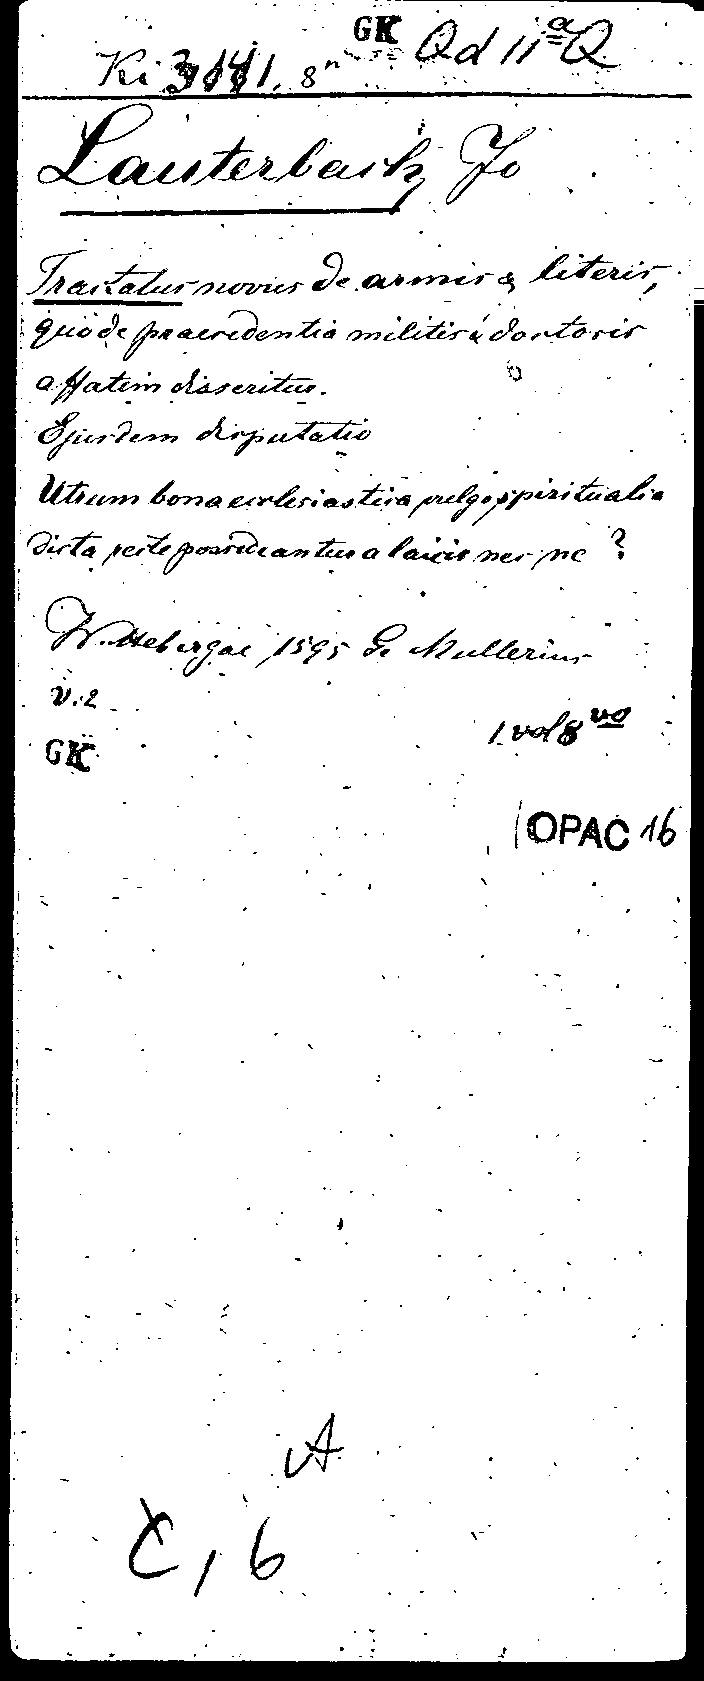 GK Qd 11ª Q
Ki 8º
Lauterbach, Jo
Tractatus novus de armis & literis,
quo de praecedentia militis & doctoris
affatim disseritur.
Ejusdem disputatio
Utrum bona ecclesiastica vulgo spiritualia
dicta recte possideantur a laicis nec ne ?
Wittebergae 1595 Mullerius
V. 2
1 vol 8vo
GK
OPAC 16
A
C, 6